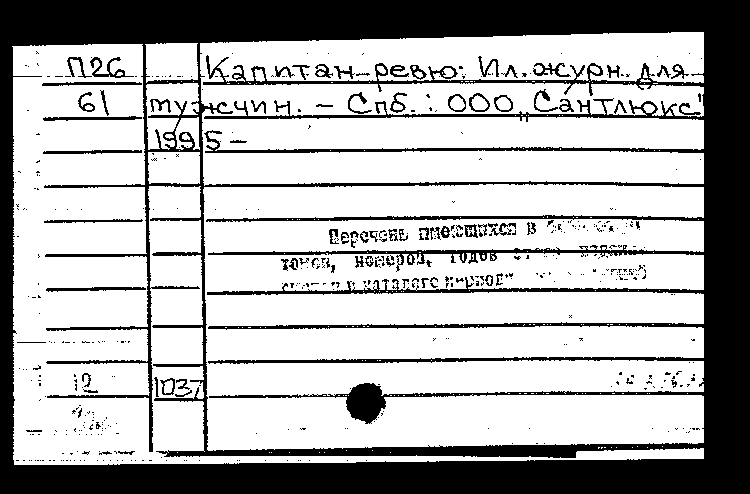 П26 Капитан-ревю: Ил. журн. для
61 мужчин. – Спб.: ООО „Сантлюкс"
1995 –
Перечень имеющихся в
томов, номеров, годов
в каталоге период
12 1037